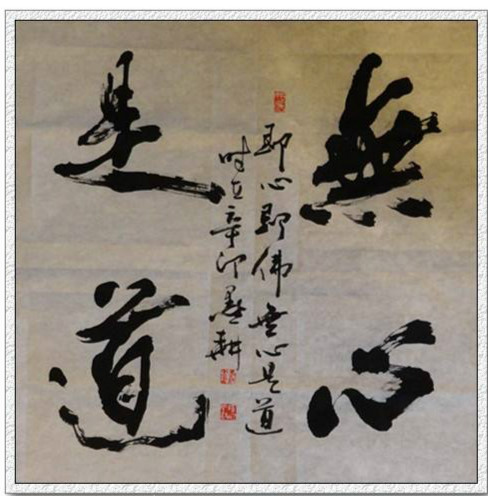 無心
是道
即心即佛無心是道
時在辛卯墨耕